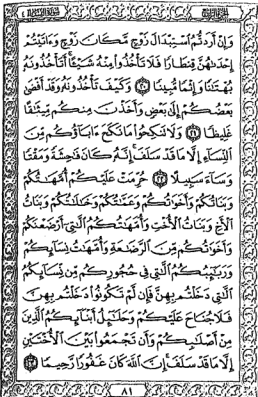 وَإِنْ أَرَدتُّمُ اسْتِبْدَالَ زَوْجٍ مَّكَانَ زَوْجٍ وَءَاتَيْتُمْ
إِحْدَىٰهُنَّ قِنطَارًا فَلَا تَأْخُذُوا۟ مِنْهُ شَيْـًٔا أَتَأْخُذُونَهُۥ
بُهْتَٰنًا وَإِثْمًا مُّبِينًا ٢٠ وَكَيْفَ تَأْخُذُونَهُۥ وَقَدْ أَفْضَىٰ
بَعْضُكُمْ إِلَىٰ بَعْضٍ وَأَخَذْنَ مِنكُم مِّيثَٰقًا
غَلِيظًا ٢١ وَلَا تَنكِحُوا۟ مَا نَكَحَ ءَابَآؤُكُم مِّنَ
النِّسَآءِ إِلَّا مَا قَدْ سَلَفَ إِنَّهُۥ كَانَ فَٰحِشَةً وَمَقْتًا
وَسَآءَ سَبِيلًا ٢٢ حُرِّمَتْ عَلَيْكُمْ أُمَّهَٰتُكُمْ
وَبَنَاتُكُمْ وَأَخَوَٰتُكُمْ وَعَمَّٰتُكُمْ وَخَٰلَٰتُكُمْ وَبَنَاتُ
الْأَخِ وَبَنَاتُ الْأُخْتِ وَأُمَّهَٰتُكُمُ الَّٰتِىٓ أَرْضَعْنَكُمْ
وَأَخَوَٰتُكُم مِّنَ الرَّضَٰعَةِ وَأُمَّهَٰتُ نِسَآئِكُمْ
وَرَبَٰٓئِبُكُمُ الَّٰتِى فِى حُجُورِكُم مِّن نِّسَآئِكُمُ
الَّٰتِى دَخَلْتُم بِهِنَّ فَإِن لَّمْ تَكُونُوا۟ دَخَلْتُم بِهِنَّ
فَلَا جُنَاحَ عَلَيْكُمْ وَحَلَٰٓئِلُ أَبْنَآئِكُمُ الَّذِينَ
مِنْ أَصْلَٰبِكُمْ وَأَن تَجْمَعُوا۟ بَيْنَ الْأُخْتَيْنِ
إِلَّا مَا قَدْ سَلَفَ إِنَّ اللَّهَ كَانَ غَفُورًا رَّحِيمًا ٢٣
٨١